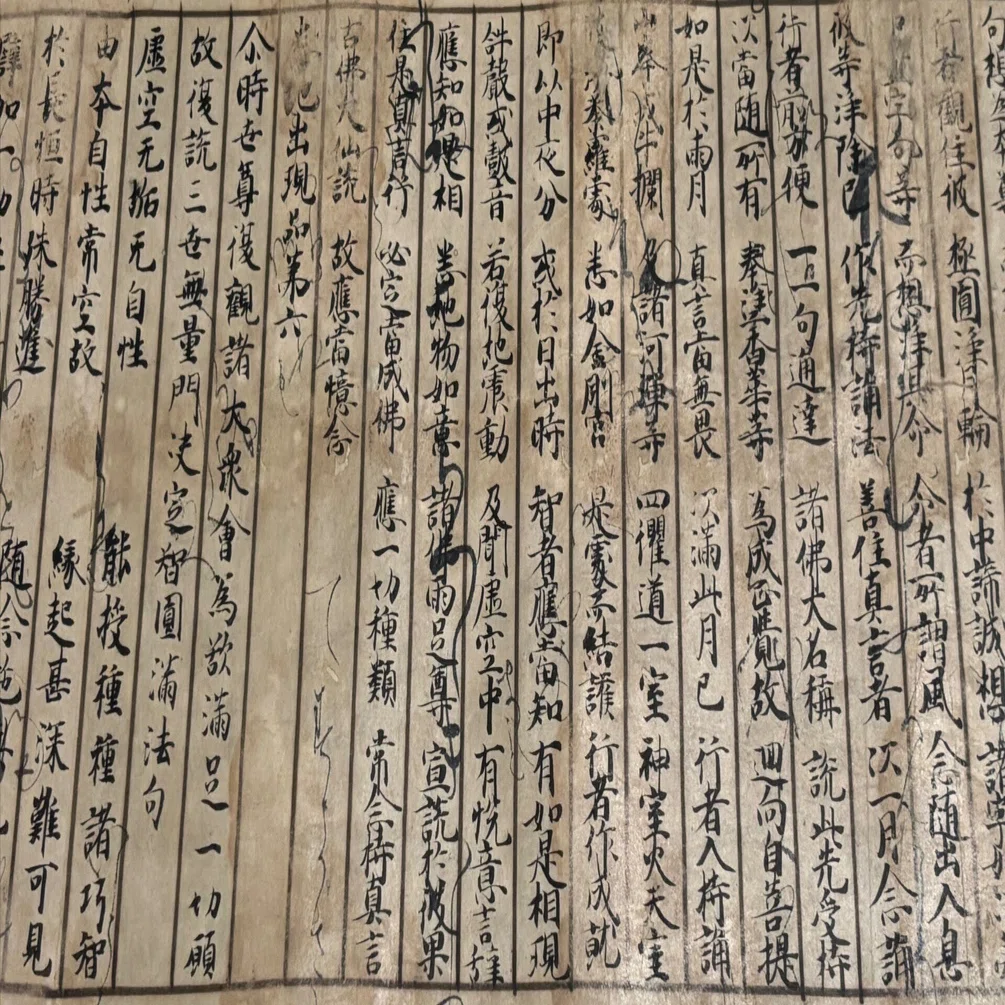 行者觀住彼 極圓淨月輪 於中諦誠想
字句等 而想淨其命 命者所謂風 念隨出入息
彼等淨除已 作先持誦法 善住真言者 次一月念誦
行者前方便 一一句通達 諸佛大名稱 說此先受持
次當隨所有 奉塗香華等 為成正覺故 迴向自菩提
如是於兩月 真言當無畏 次滿此月已 行者入持誦
山峯或牛欄 及諸河潬等 四衢道一室 神室大天室
彼漫荼羅處 悉如金剛宮 是處而結護 行者作成就
即以中夜分 或於日出時 智者應當知 有如是相現
𤙖聲或鼓音 若復地震動 及聞虛空中 有悅意言辭
應知如是相 悉地物如意 諸佛兩足尊 宣說於彼果
住是真言行 必定當成佛 應一切種類 常念持真言
古佛大仙說 故應當憶念
悉地出現品第六
尒時世尊復觀諸大衆會為欲滿足一切願
故復說三世無量門決定智圓滿法句
虛空无垢无自性 能授種種諸巧智
由本自性常空故 緣起甚深難可見
於長恒時殊勝進 隨念施與